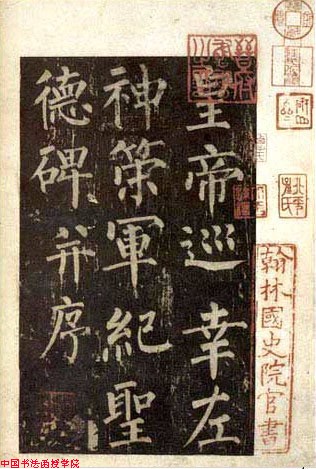 皇帝巡幸左
神策軍紀聖
德碑并序
翰林國史院官書
中国书法函授学院